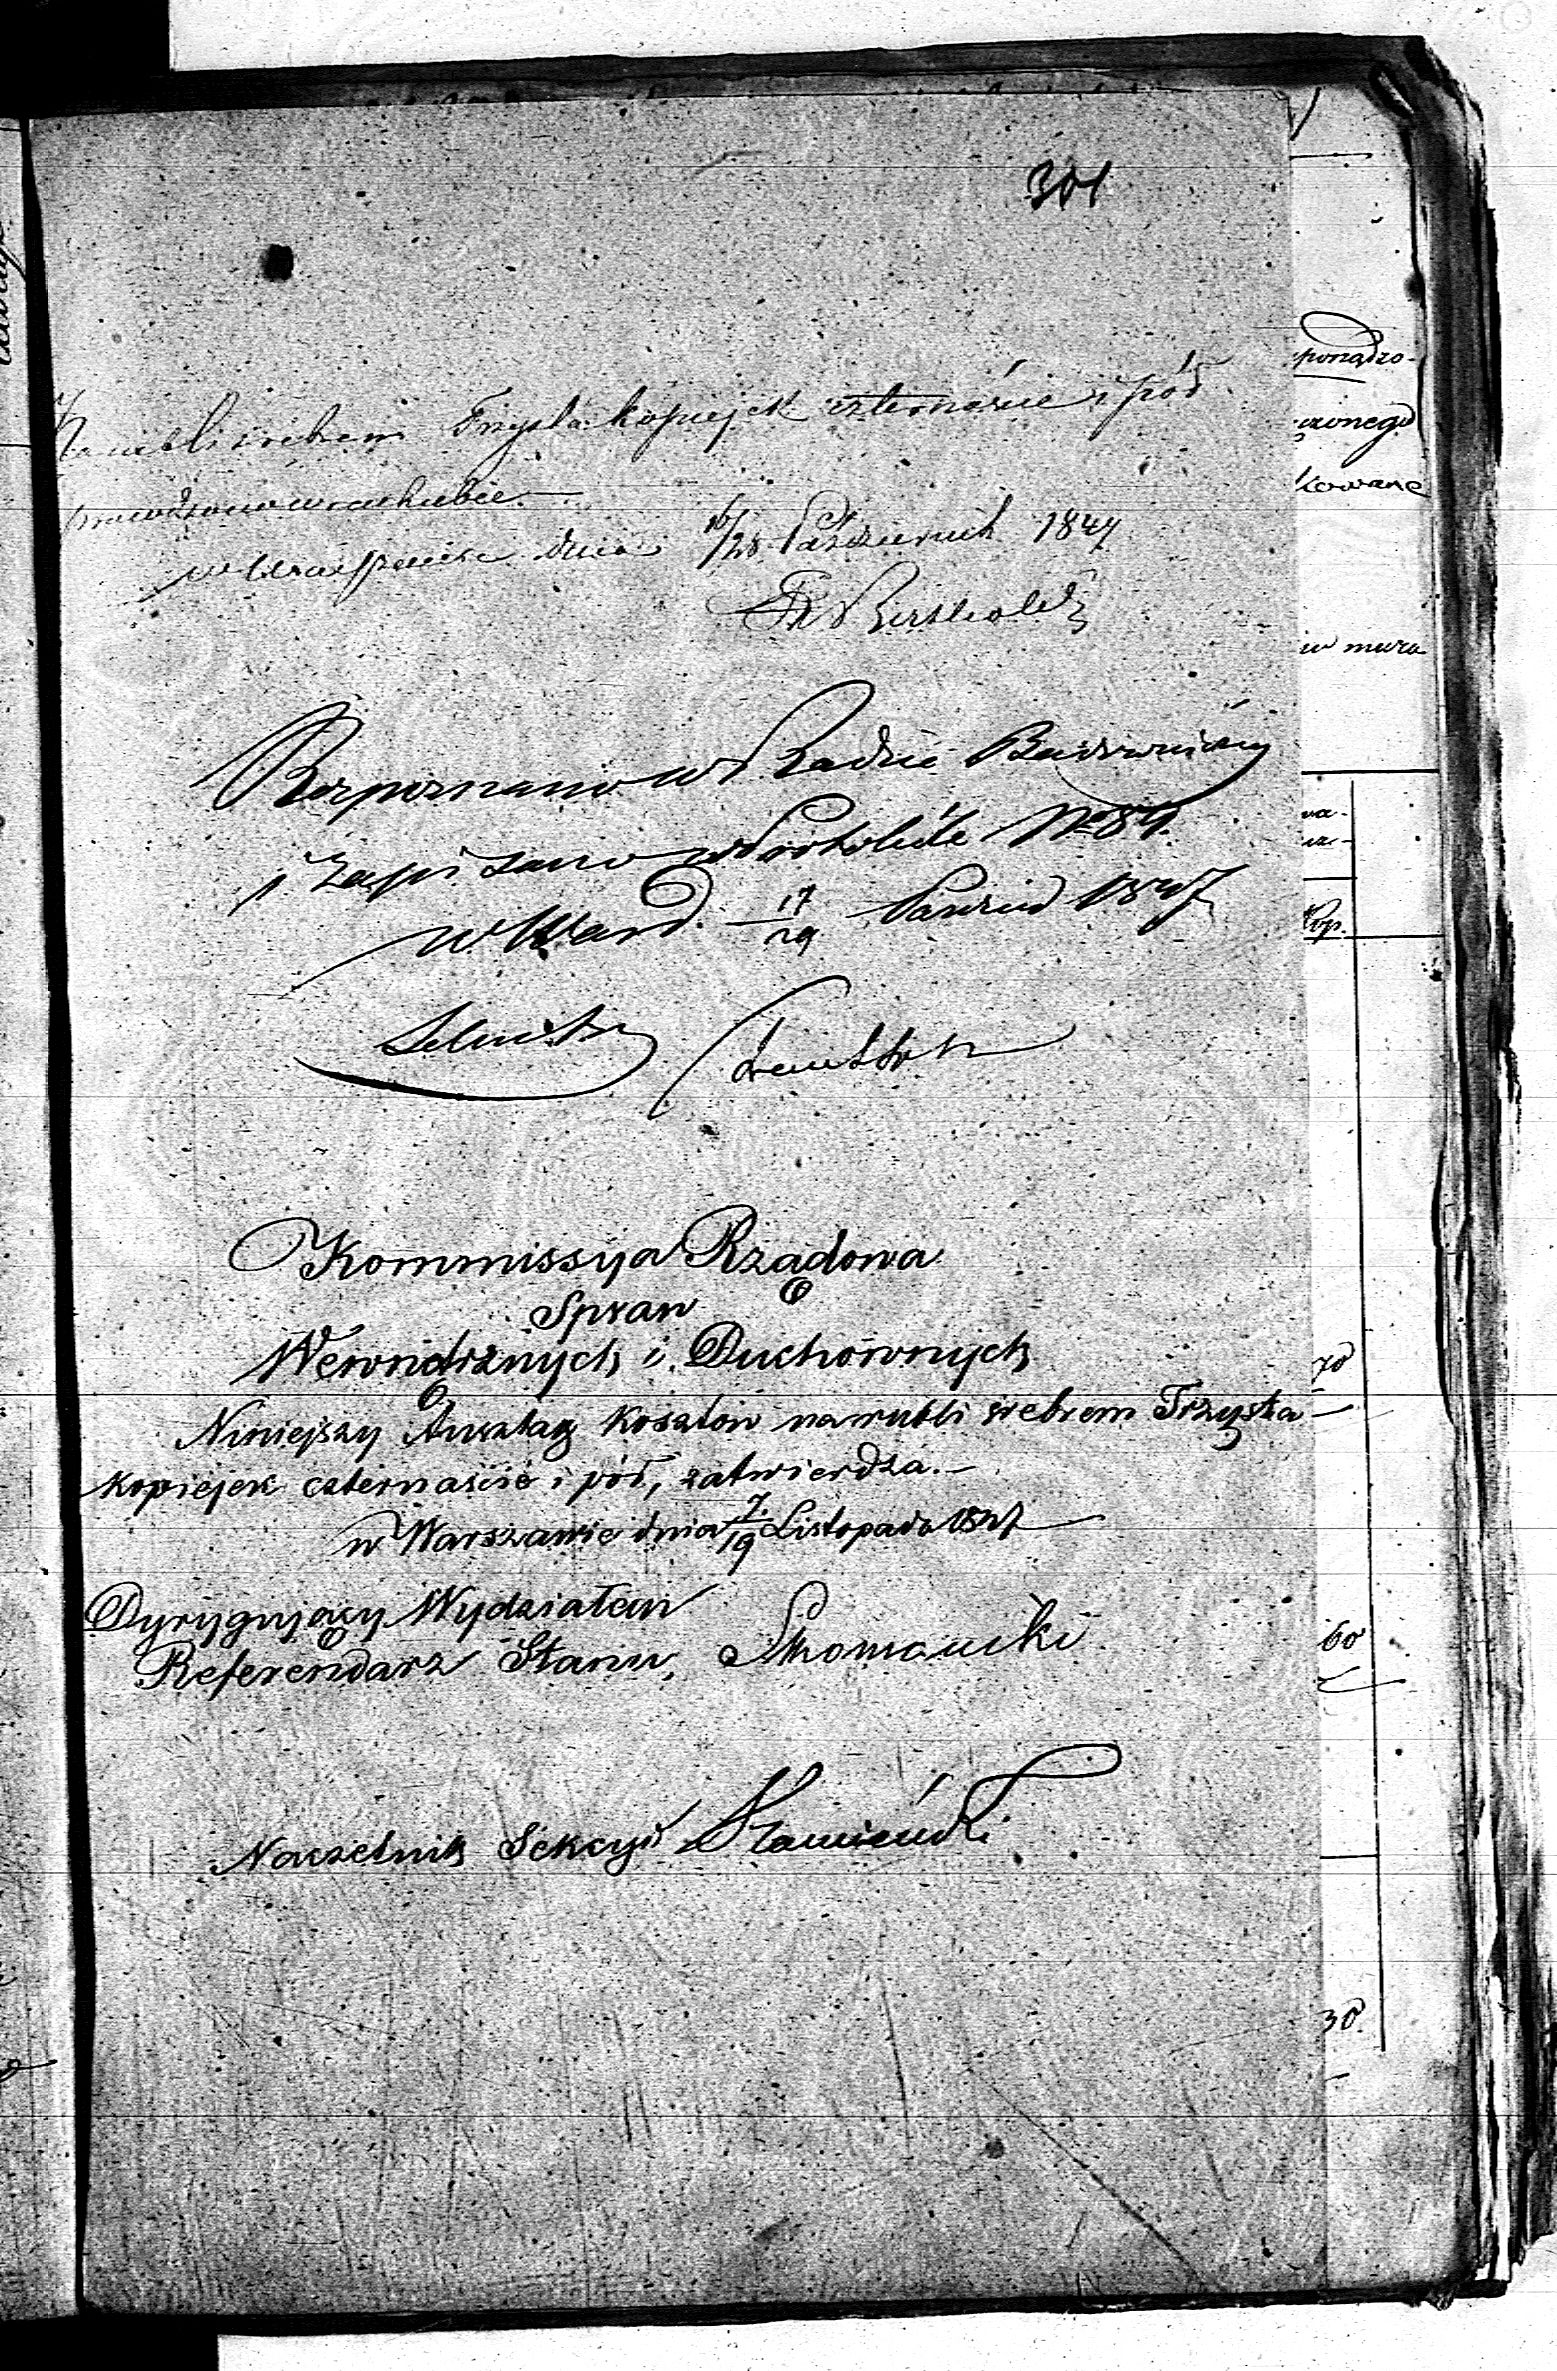 301
Na rubli srebrem Trzysta kopiejek czternaście i pół
sprawdzono w rachubie
w Warszawie dnia 16/28 Październik 1847
Rozpoznano w Radzie Budowniczej
i zapisano w Protokóle No 89.
w Warsz. 17/29 Paździer 1847
Kommissya Rządowa
Spraw
Wewnętrznych i Duchownych
Niniejszy Anszlag kosztów na rubli srebrem Trzysta
kopiejek czternaście i pół, zatwierdza.—
w Warszawie dnia 7/19 Listopada 1847
Dyrygujący Wydziałem
Referendarz Stanu,
Naczelnik Sekcyi
ponądzo-
kowane
w muru
Kop.
70
60
30.